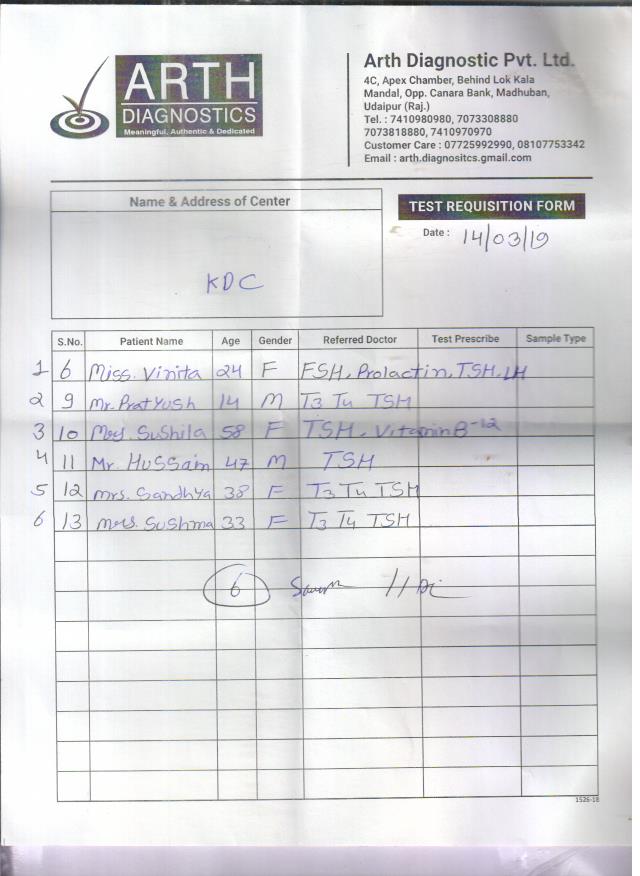 ARTH
DIAGNOSTICS
Meaningful, Authentic & Dedicated
Arth Diagnostic Pvt. Ltd.
4C, Apex Chamber, Behind Lok Kala
Mandal, Opp. Canara Bank, Madhuban,
Udaipur (Raj.)
Tel. : 7410980980, 7073308880
7073818880, 7410970970
Customer Care : 07725992990, 08107753342
Email : arth.diagnositcs.gmail.com
Name & Address of Center
KDC
TEST REQUISITION FORM
Date : 14/03/19
S.No. Patient Name Age Gender Referred Doctor Test Prescribe Sample Type
1 6 Miss. Vinita 24 F FSH, Prolactin, TSH, LH
2 9 Mr. Pratyush 14 M T3 T4 TSH
3 10 Mrs. Sushila 58 F TSH, Vitamin B-12
4 11 Mr. Hussain 47 M TSH
5 12 Mrs. Sandhya 38 F T3 T4 TSH
6 13 Mrs. Sushma 33 F T3 T4 TSH
6
1526-18